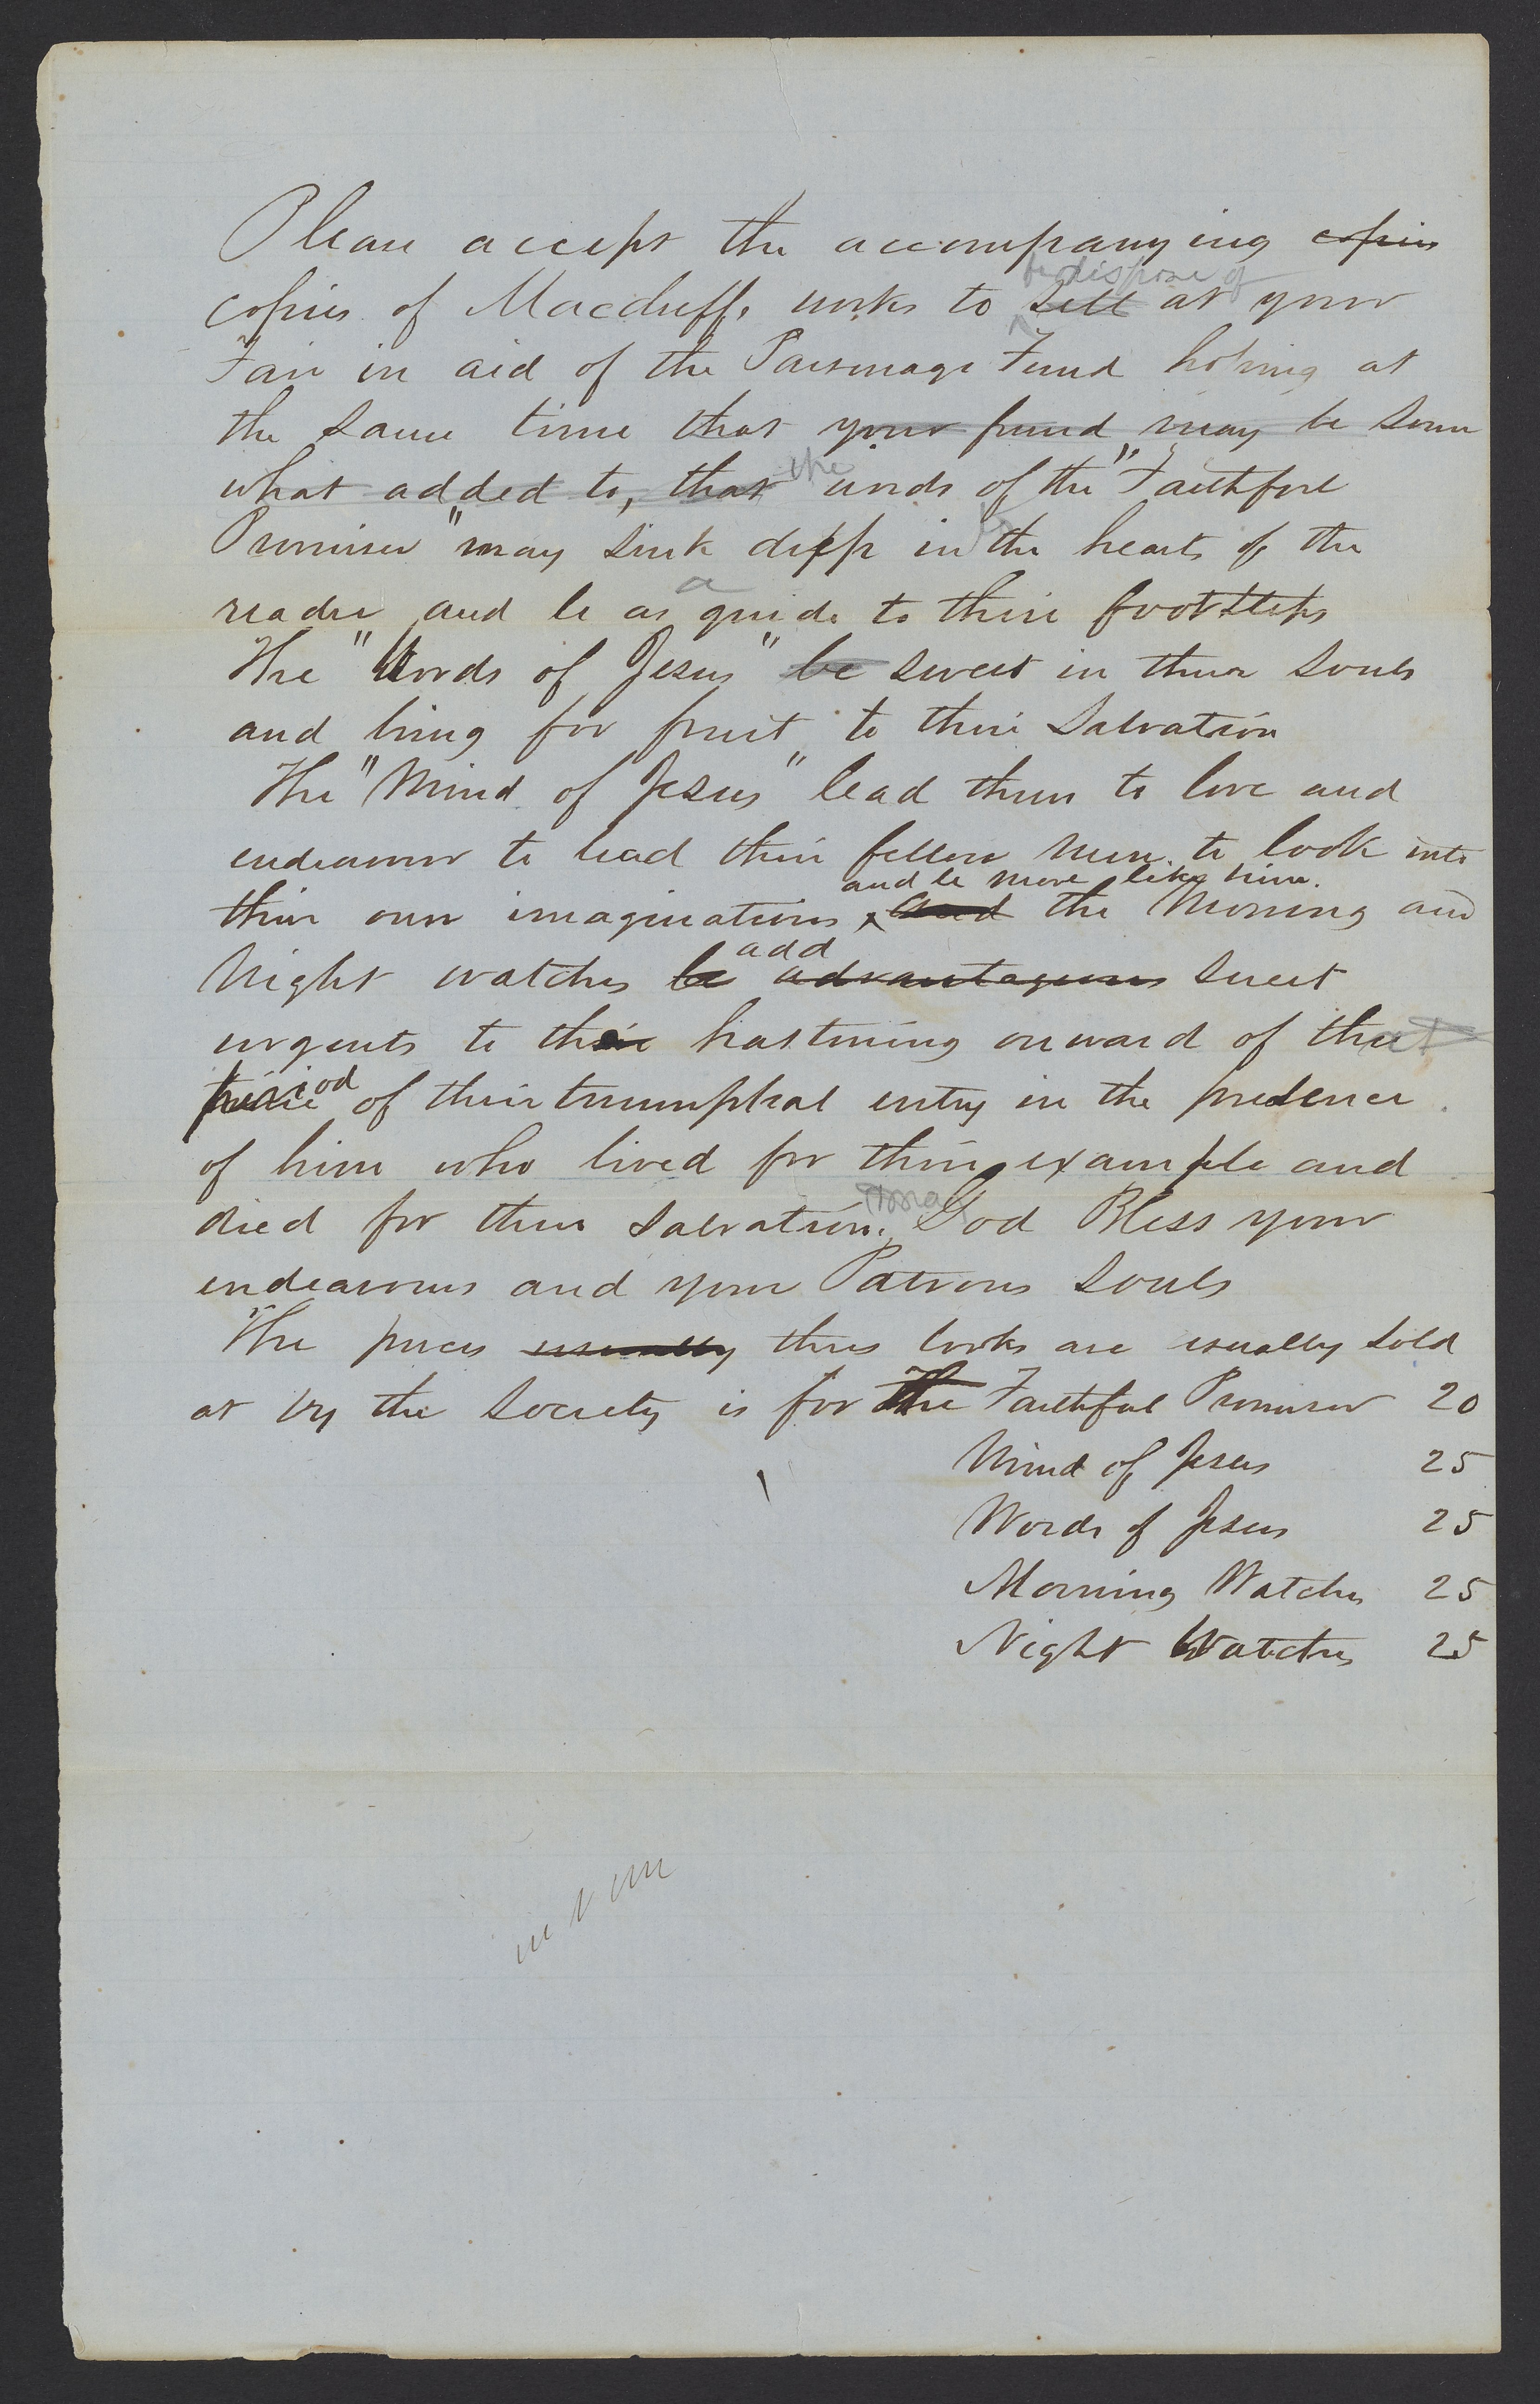 Please accept the accompanying copies
be dispose of
copies of Macduffs works to sell at your
Fair in aid of the Parsonage Fund hoping at
the same time that your fund may be some
what added to, that the words of the "Faithful
Promiser" may sink deep in the hearts of the
reader and be as a guide to their footsteps
The "Words of Jesus" be sweet in their souls
and bring for fruit to their Salvation
The "Mind of Jesus" lead them to love and
endeavour to lead their fellow men to look into
and be more like him.
their own imaginations and the Morning and
add
Night watches be advantageous sweet
urgents to their hastening onward of that
period of their triumphal entry in the presence
of him who lived for their example and
died for their salvation. May God Bless your
endeavours and your Patrons Souls
The prices usually thes books are usually sold
at by the Society is for The Faithful Promiser 20
Mind of Jesus 25
Words of Jesus 25
Morning Watches 25
Night Watches 25